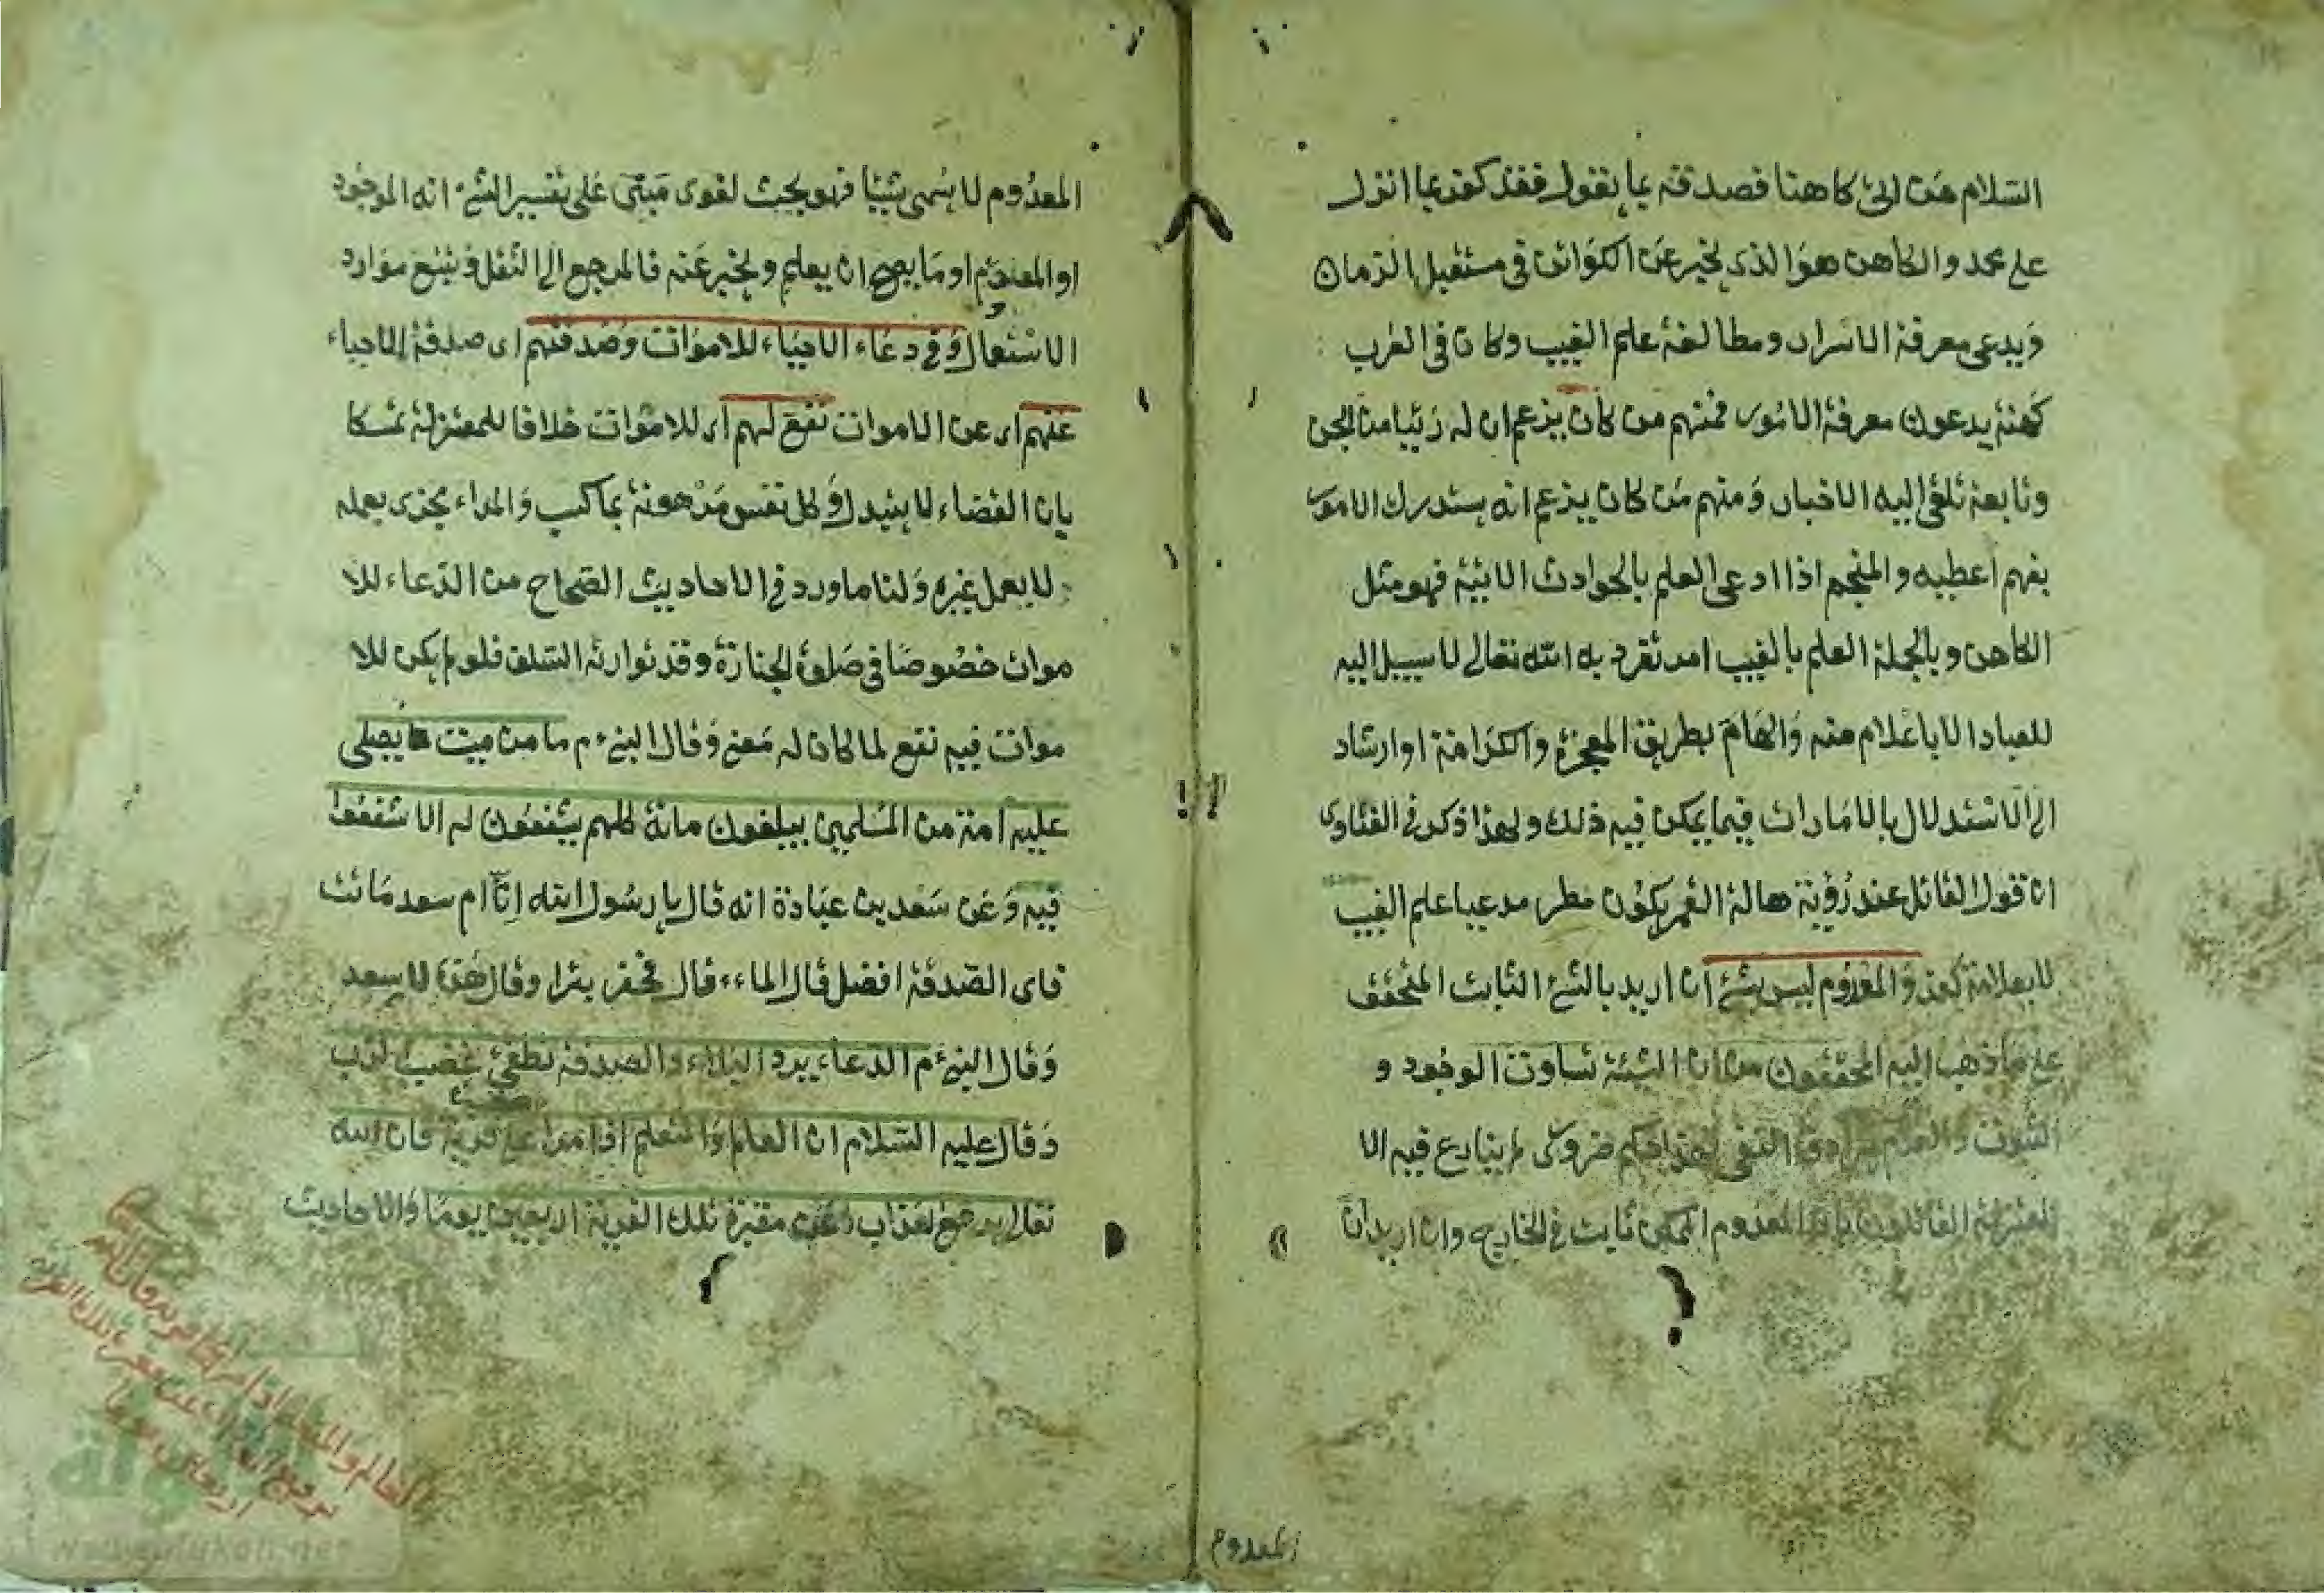 السلام من اتى كاهنا فصدقه بما يقول فقد كفر بما انزل
على محمد والكاهن هو الذى يخبر عن الكوائن فى مستقبل الزمان
ويدعى معرفة الاسرار ومطالعة علم الغيب وكان فى العرب
كهنة يدعون معرفة الامور فمنهم من كان يزعم ان له رئيا من الجن
وتابعة تلقى اليه الاخبار ومنهم من كان يزعم انه يستدرك الامور
بفهم اعطيه والمنجم اذا ادعى العلم بالحوادث الاتية فهو مثل
الكاهن وبالجملة العلم بالغيب امر تفرد به الله تعالى لا سبيل اليه
للعباد الا باعلام منه والهام بطريق المعجزة والكرامة او ارشاد
الى الاستدلال بالامارات فيما يمكن فيه ذلك ولهذا ذكر فى الفتاوى
ان قول القائل عند رؤية هالة القمر يكون مطر مدعيا علم الغيب
لا بعلامة كفر والمعدوم ليس بشئ ان اريد بالشئ الثابت المتحقق
على ما ذهب اليه المحققون من ان الشيئة تساوق الوجود و
الثبوت والعدم يرادف النفى فهذا حكم ضرورى لم ينازع فيه الا
المعتزلة القائلون بان المعدوم الممكن ثابت فى الخارج وان اريد ان
المعدوم
المعدوم لا يسمى شيئا فهو بحث لغوى مبنى على تفسير الشئ انه الموجود
او المعدوم او ما يصح ان يعلم ويخبر عنه فالمرجع الى النقل وتتبع موارد
الاستعمال وفى دعاء الاحياء للاموات وصدقتهم اى صدقة الاحياء
عنهم اى عن الاموات نفع لهم اى للاموات خلافا للمعتزلة تمسكا
بان القضاء لا يتبدل وكل نفس مرهونة بما كسب والمراء مجزى بعمله
لا بعمل غيره ولنا ما ورد فى الاحاديث الصحاح من الدعاء للا
موات خصوصا فى صلوة الجنازة وقد توارثه السلف فلو لم يكن للا
موات فيه نفع لما كان له معنى وقال النبى م ما من ميت يصلى
عليه امة من المسلمين يبلغون مائة كلهم يشفعون له الا شفعوا
فيه وعن سعد بن عبادة انه قال يا رسول الله ان ام سعد ماتت
فاى الصدقة افضل قال الماء قال فحفر بئرا وقال هذا لام سعد
وقال النبى م الدعاء يرد البلاء والصدقة تطفئ غضب الرب
وقال عليه السلام ان العالم والمتعلم اذا مرا على قرية فان الله
تعالى يرفع العذاب عن مقبرة تلك القرية اربعين يوما والاحاديث